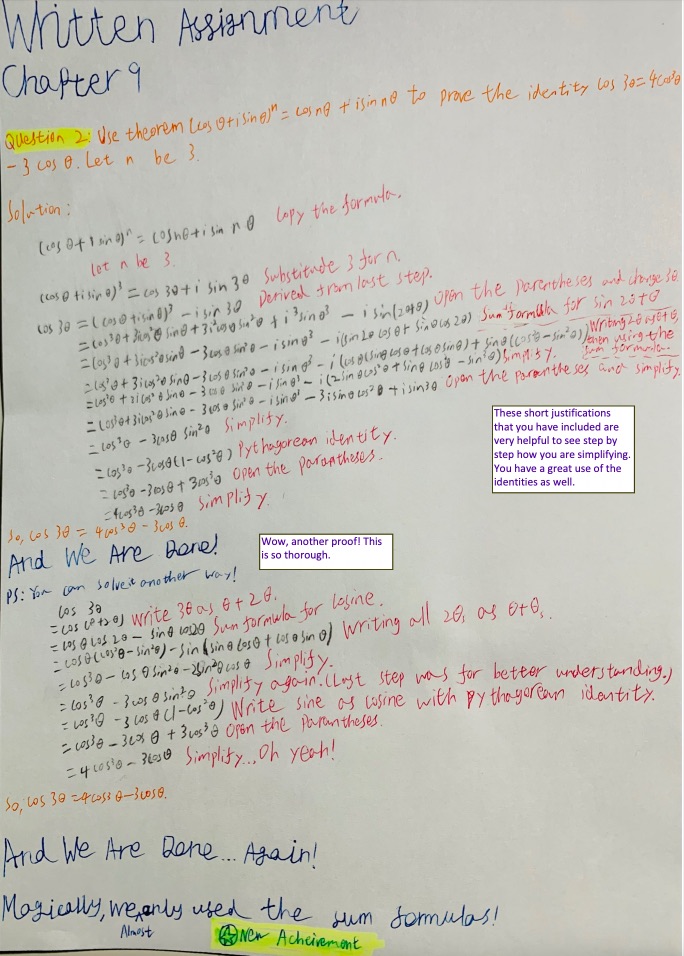 Written Assignment
Chapter 9
Question 2: Use theorem (cos θ+i sin θ)ⁿ = cos nθ + i sin nθ to prove the identity cos 3θ = 4cos³θ
- 3 cos θ. Let n be 3.
Solution:
(cos θ + i sin θ)ⁿ = cos nθ + i sin n θ Copy the formula.
Let n be 3.
(cos θ + i sin θ)³ = cos 3θ + i sin 3θ Substitude 3 for n.
cos 3θ = (cos θ + i sin θ)³ - i sin 3θ Derived from last step.
= cos³θ + 3i cos²θ sin θ + 3i² cos θ sin²θ + i³ sin θ³ - i sin(2θ+θ) Open the parentheses and change 3θ
= cos³θ + 3i cos²θ sin θ - 3cos θ sin²θ - i sin θ³ - i(sin 2θ cos θ + sin θ cos 2θ) Sum formula for sin 2θ+θ
(Writing 2θ as θ+θ,
then using the
sum formula.
= cos³θ + 3i cos²θ sin θ - 3cos θ sin²θ - i sin θ³ - i (cos θ(sin θ cos θ + cos θ sin θ) + sin θ (cos²θ - sin²θ))
= cos³θ + 3i cos²θ sin θ - 3cos θ sin²θ - i sin θ³ - i (2sin θ cos²θ + sin θ cos²θ - sin³θ) Simplify.
= cos³θ + 3i cos²θ sin θ - 3cos θ sin²θ - i sin θ³ - 3i sin θ cos²θ + i sin³θ Open the parantheses and simplify.
= cos³θ - 3cosθ sin²θ Simplify.
= cos³θ - 3cosθ(1 - cos²θ) Pythagorean identity.
= cos³θ - 3cosθ + 3cos³θ Open the parantheses.
= 4cos³θ - 3cosθ Simplify.
These short justifications
that you have included are
very helpful to see step by
step how you are simplifying.
You have a great use of the
identities as well.
So, cos 3θ = 4cos³θ - 3cos θ.
And We Are Done!
Wow, another proof! This
is so thorough.
PS: You can solve it another way!
cos 3θ
= cos (θ+2θ) Write 3θ as θ+2θ.
= cos θ cos 2θ - sin θ cos2θ Sum formula for cosine.
= cosθ(cos²θ - sin²θ) - sin (sin θ cosθ + cosθ sin θ) Writing all 2θs as θ+θs.
= cos³θ - cos θ sin²θ - 2sin²θ cos θ Simplify.
= cos³θ - 3cos θ sin²θ Simplify again. (Last step was for better understanding.)
= cos³θ - 3 cos θ (1 - cos²θ) Write sine as cosine with pythagorean identity.
= cos³θ - 3cos θ + 3cos³θ Open the Parantheses.
= 4cos³θ - 3cosθ Simplify... Oh yeah!
So, cos 3θ = 4cos3 θ - 3cosθ.
And We Are Done... Again!
Magically, we only used the sum formulas!
Almost
A New Acheivement